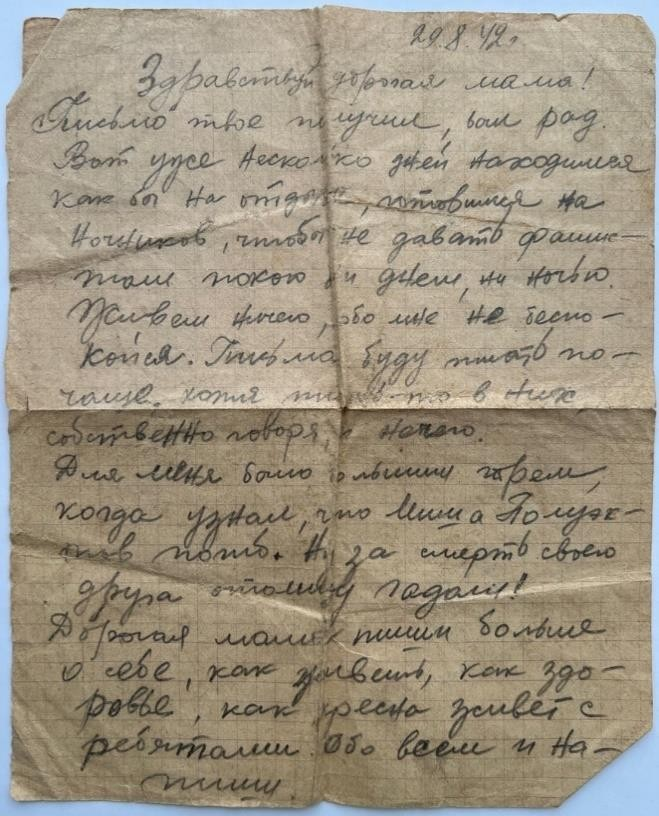 29.8.42г
Здравствуй дорогая мама!
Письмо твое получил, был рад.
Вот уже несколько дней находимся
как бы на отдыхе, готовимся на
ночников, чтобы не давать фашис-
там покою ни днем, ни ночью.
Живем ничего, обо мне не беспо-
койся. Письма буду писать по-
чаще, хотя писать-то в них,
собственно говоря, и нечего.
Для меня было большим горем,
когда узнал, что Миша Полуэк-
тов погиб. Ну за смерть своего
друга отомщу гадам!
Дорогая мама пиши больше
о себе, как живешь, как здо-
ровье, как кресна живет с
ребятами. Обо всем и на-
пиши.